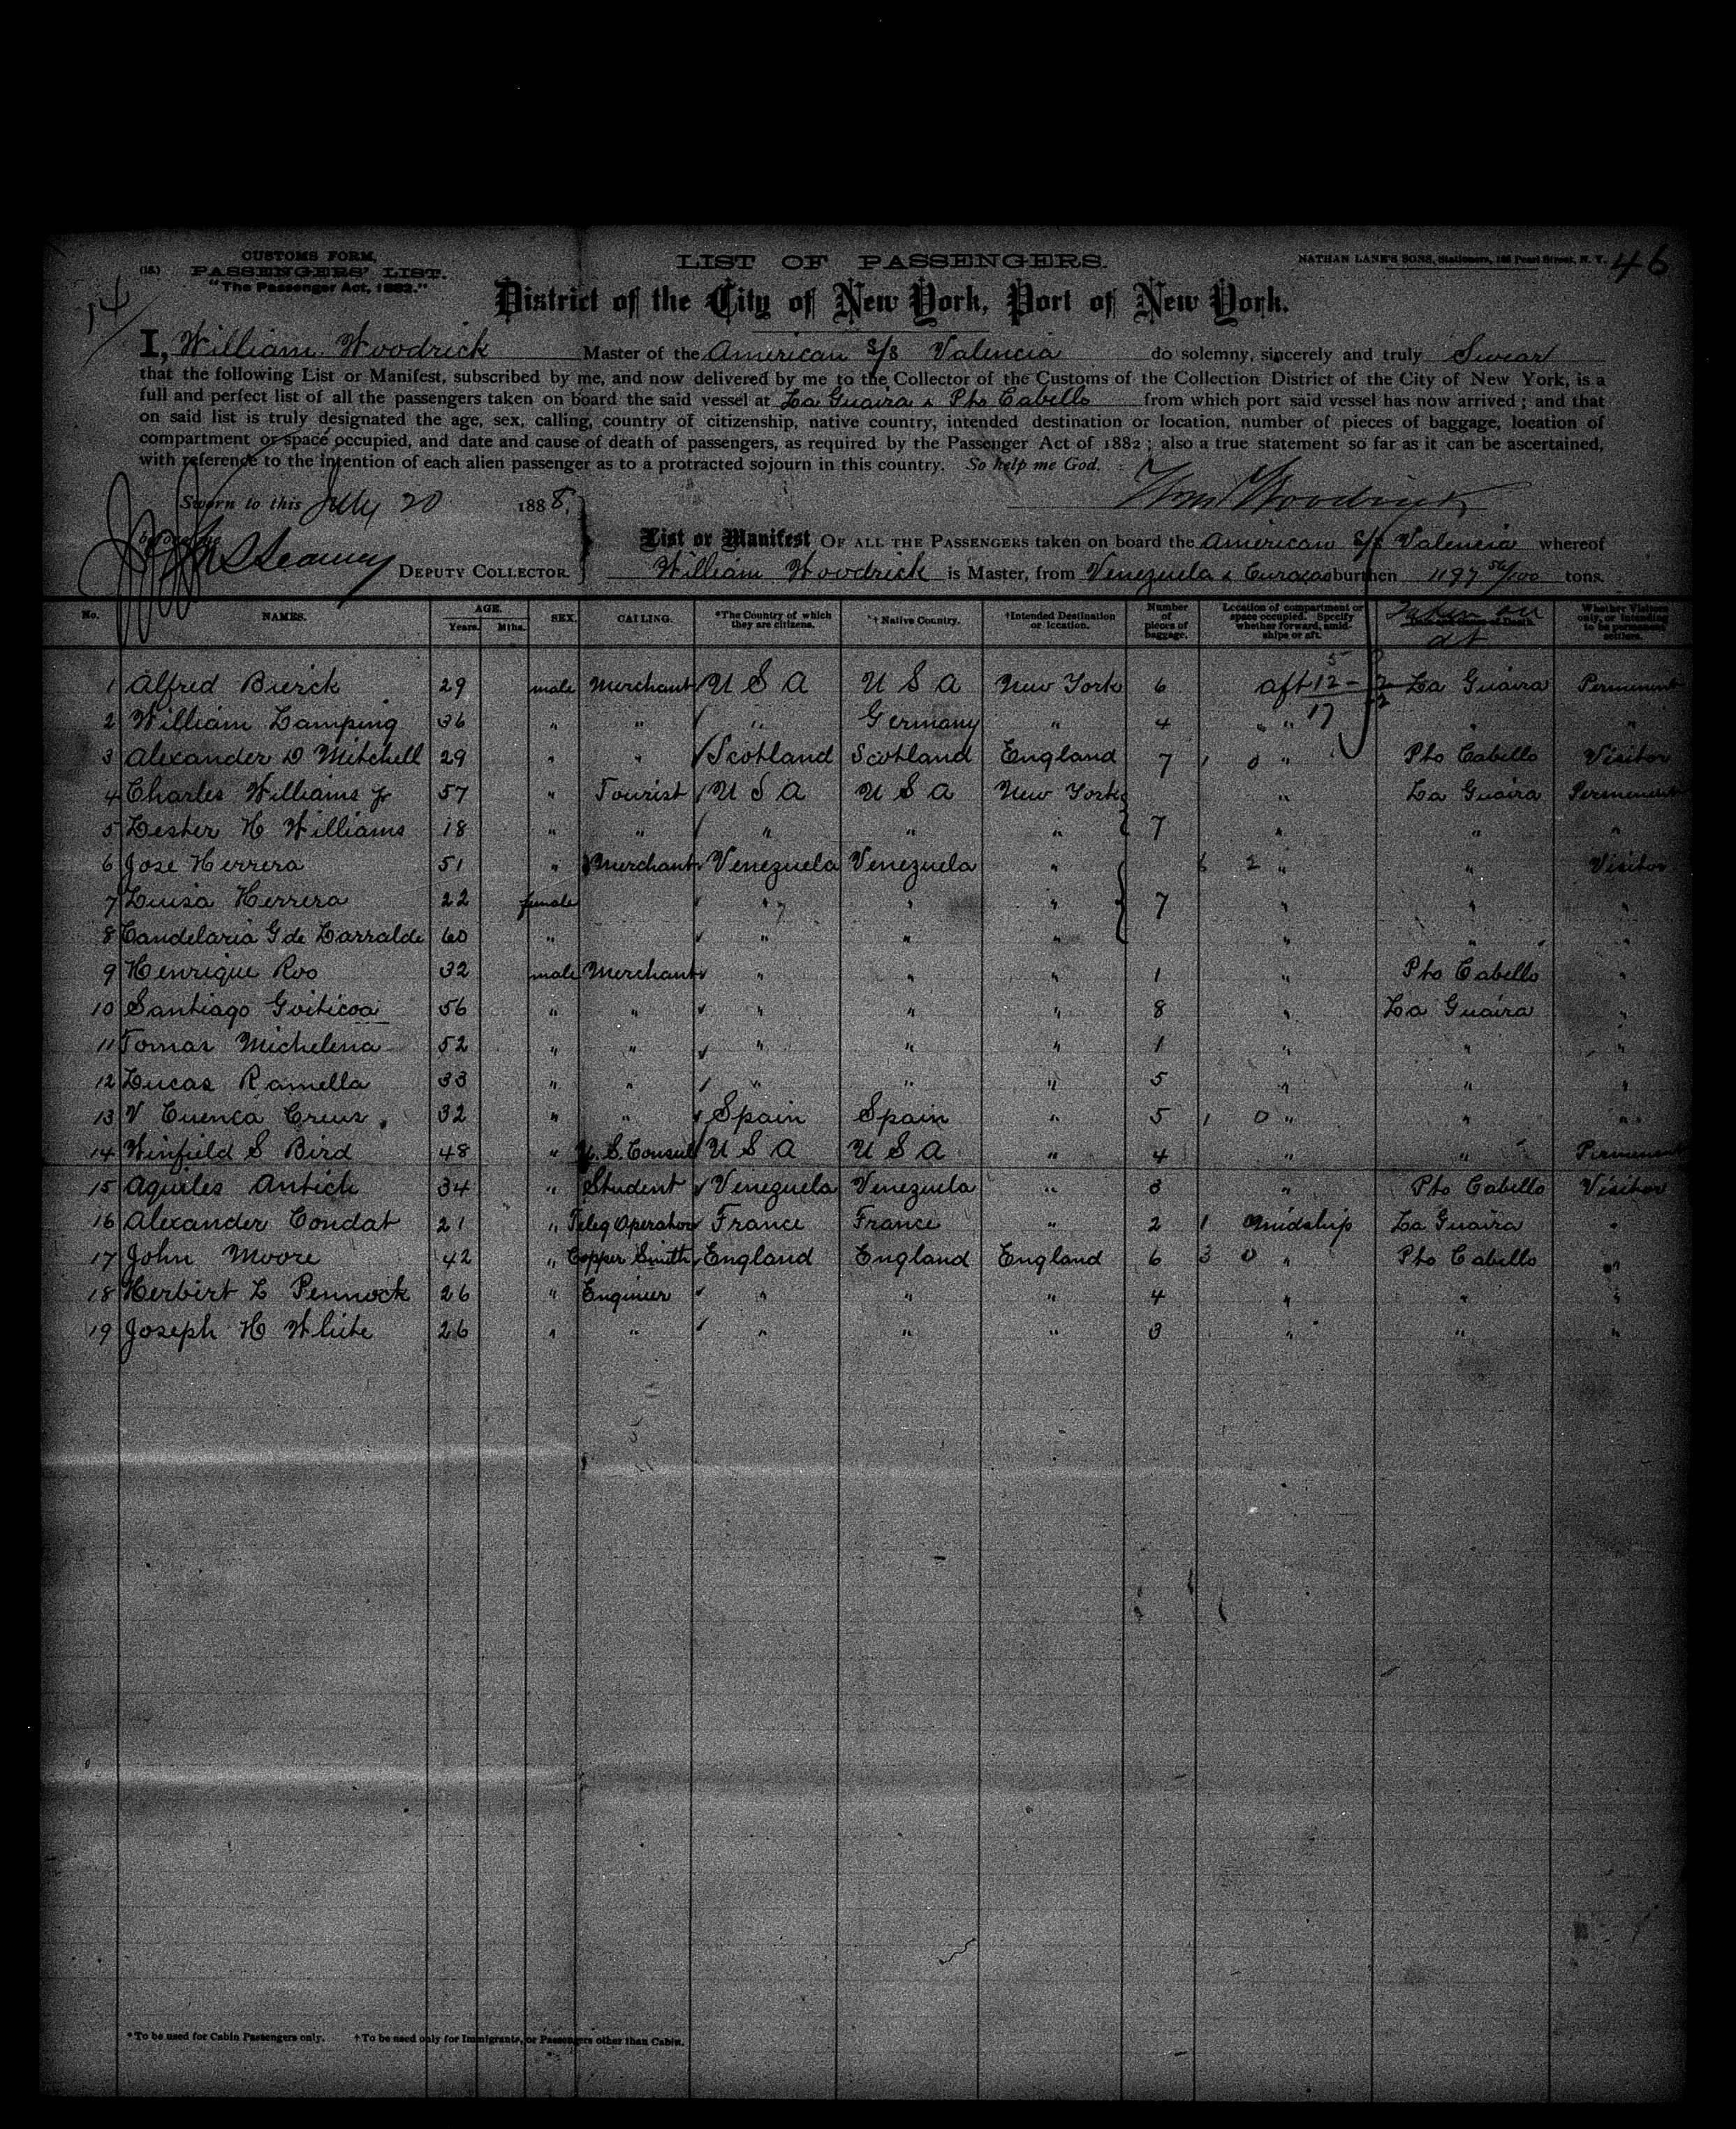 CUSTOMS FORM,
(18.) PASSENGERS' LIST.
"The Passenger Act, 1882."
LIST OF PASSENGERS.
NATHAN LANE'S SONS, Stationers, 138 Pearl Street, N. Y. 46
14
District of the City of New York, Port of New York.
I, William Woodrick Master of the American S/S Valencia do solemny, sincerely and truly Swear
that the following List or Manifest, subscribed by me, and now delivered by me to the Collector of the Customs of the Collection District of the City of New York, is a
full and perfect list of all the passengers taken on board the said vessel at La Guaira & Pto Cabello from which port said vessel has now arrived; and that
on said list is truly designated the age, sex, calling, country of citizenship, native country, intended destination or location, number of pieces of baggage, location of
compartment or space occupied, and date and cause of death of passengers, as required by the Passenger Act of 1882; also a true statement so far as it can be ascertained,
with reference to the intention of each alien passenger as to a protracted sojourn in this country. So help me God.
Sworn to this July 20 1888, Wm Woodrick
before me
DEPUTY COLLECTOR.
List or Manifest OF ALL THE PASSENGERS taken on board the American S/S Valencia whereof
William Woodrick is Master, from Venezuela & Curacao burthen 1197 56/100 tons.
No. NAMES. AGE. Years. Mths. SEX. CALLING. *The Country of which they are citizens. *† Native Country. †Intended Destination or location. Number of pieces of baggage. Location of compartment or space occupied. Specify whether forward, amidships or aft. Taken on at Whether Visitors only, or intending to be permanent settlers.
1 Alfred Bierck 29 male Merchant U S A U S A New York 6 aft 12 La Guaira Permenent
2 William Lamping 36 " " " Germany " 4 " " 17 " "
3 Alexander D Mitchell 29 " " Scotland Scotland England 7 1 0 " Pto Cabello Visitor
4 Charles Williams Jr 57 " Tourist U S A U S A New York " La Guaira Permenent
5 Lester H Williams 18 " " " " " 7 " " "
6 Jose Herrera 51 " Merchant Venezuela Venezuela " 6 2 " " Visitor
7 Luisa Herrera 22 female " " " 7 " " "
8 Candelaria G de Larralde 60 " " " " " " "
9 Henrique Roo 32 male Merchant " " " 1 " Pto Cabello "
10 Santiago Goiticoa 56 " " " " " 8 " La Guaira "
11 Tomas Michelena 52 " " " " " 1 " " "
12 Lucas Ramella 33 " " " " " 5 " " "
13 V Cuenca Creus 32 " " Spain Spain " 5 1 0 " " "
14 Winfield S Bird 48 " U. S. Consul U S A U S A " 4 " " Permenent
15 Aquiles Antich 34 " Student Venezuela Venezuela " 3 " Pto Cabello Visitor
16 Alexander Condat 21 " Teleg Operator France France " 2 1 Amidship La Guaira "
17 John Moore 42 " Copper Smith England England England 6 3 0 " Pto Cabello "
18 Herbirt L Pennock 26 " Engineer " " " 4 " " "
19 Joseph H White 26 " " " " " 3 " " "
*To be used for Cabin Passengers only. †To be used only for Immigrants, or Passengers other than Cabin.